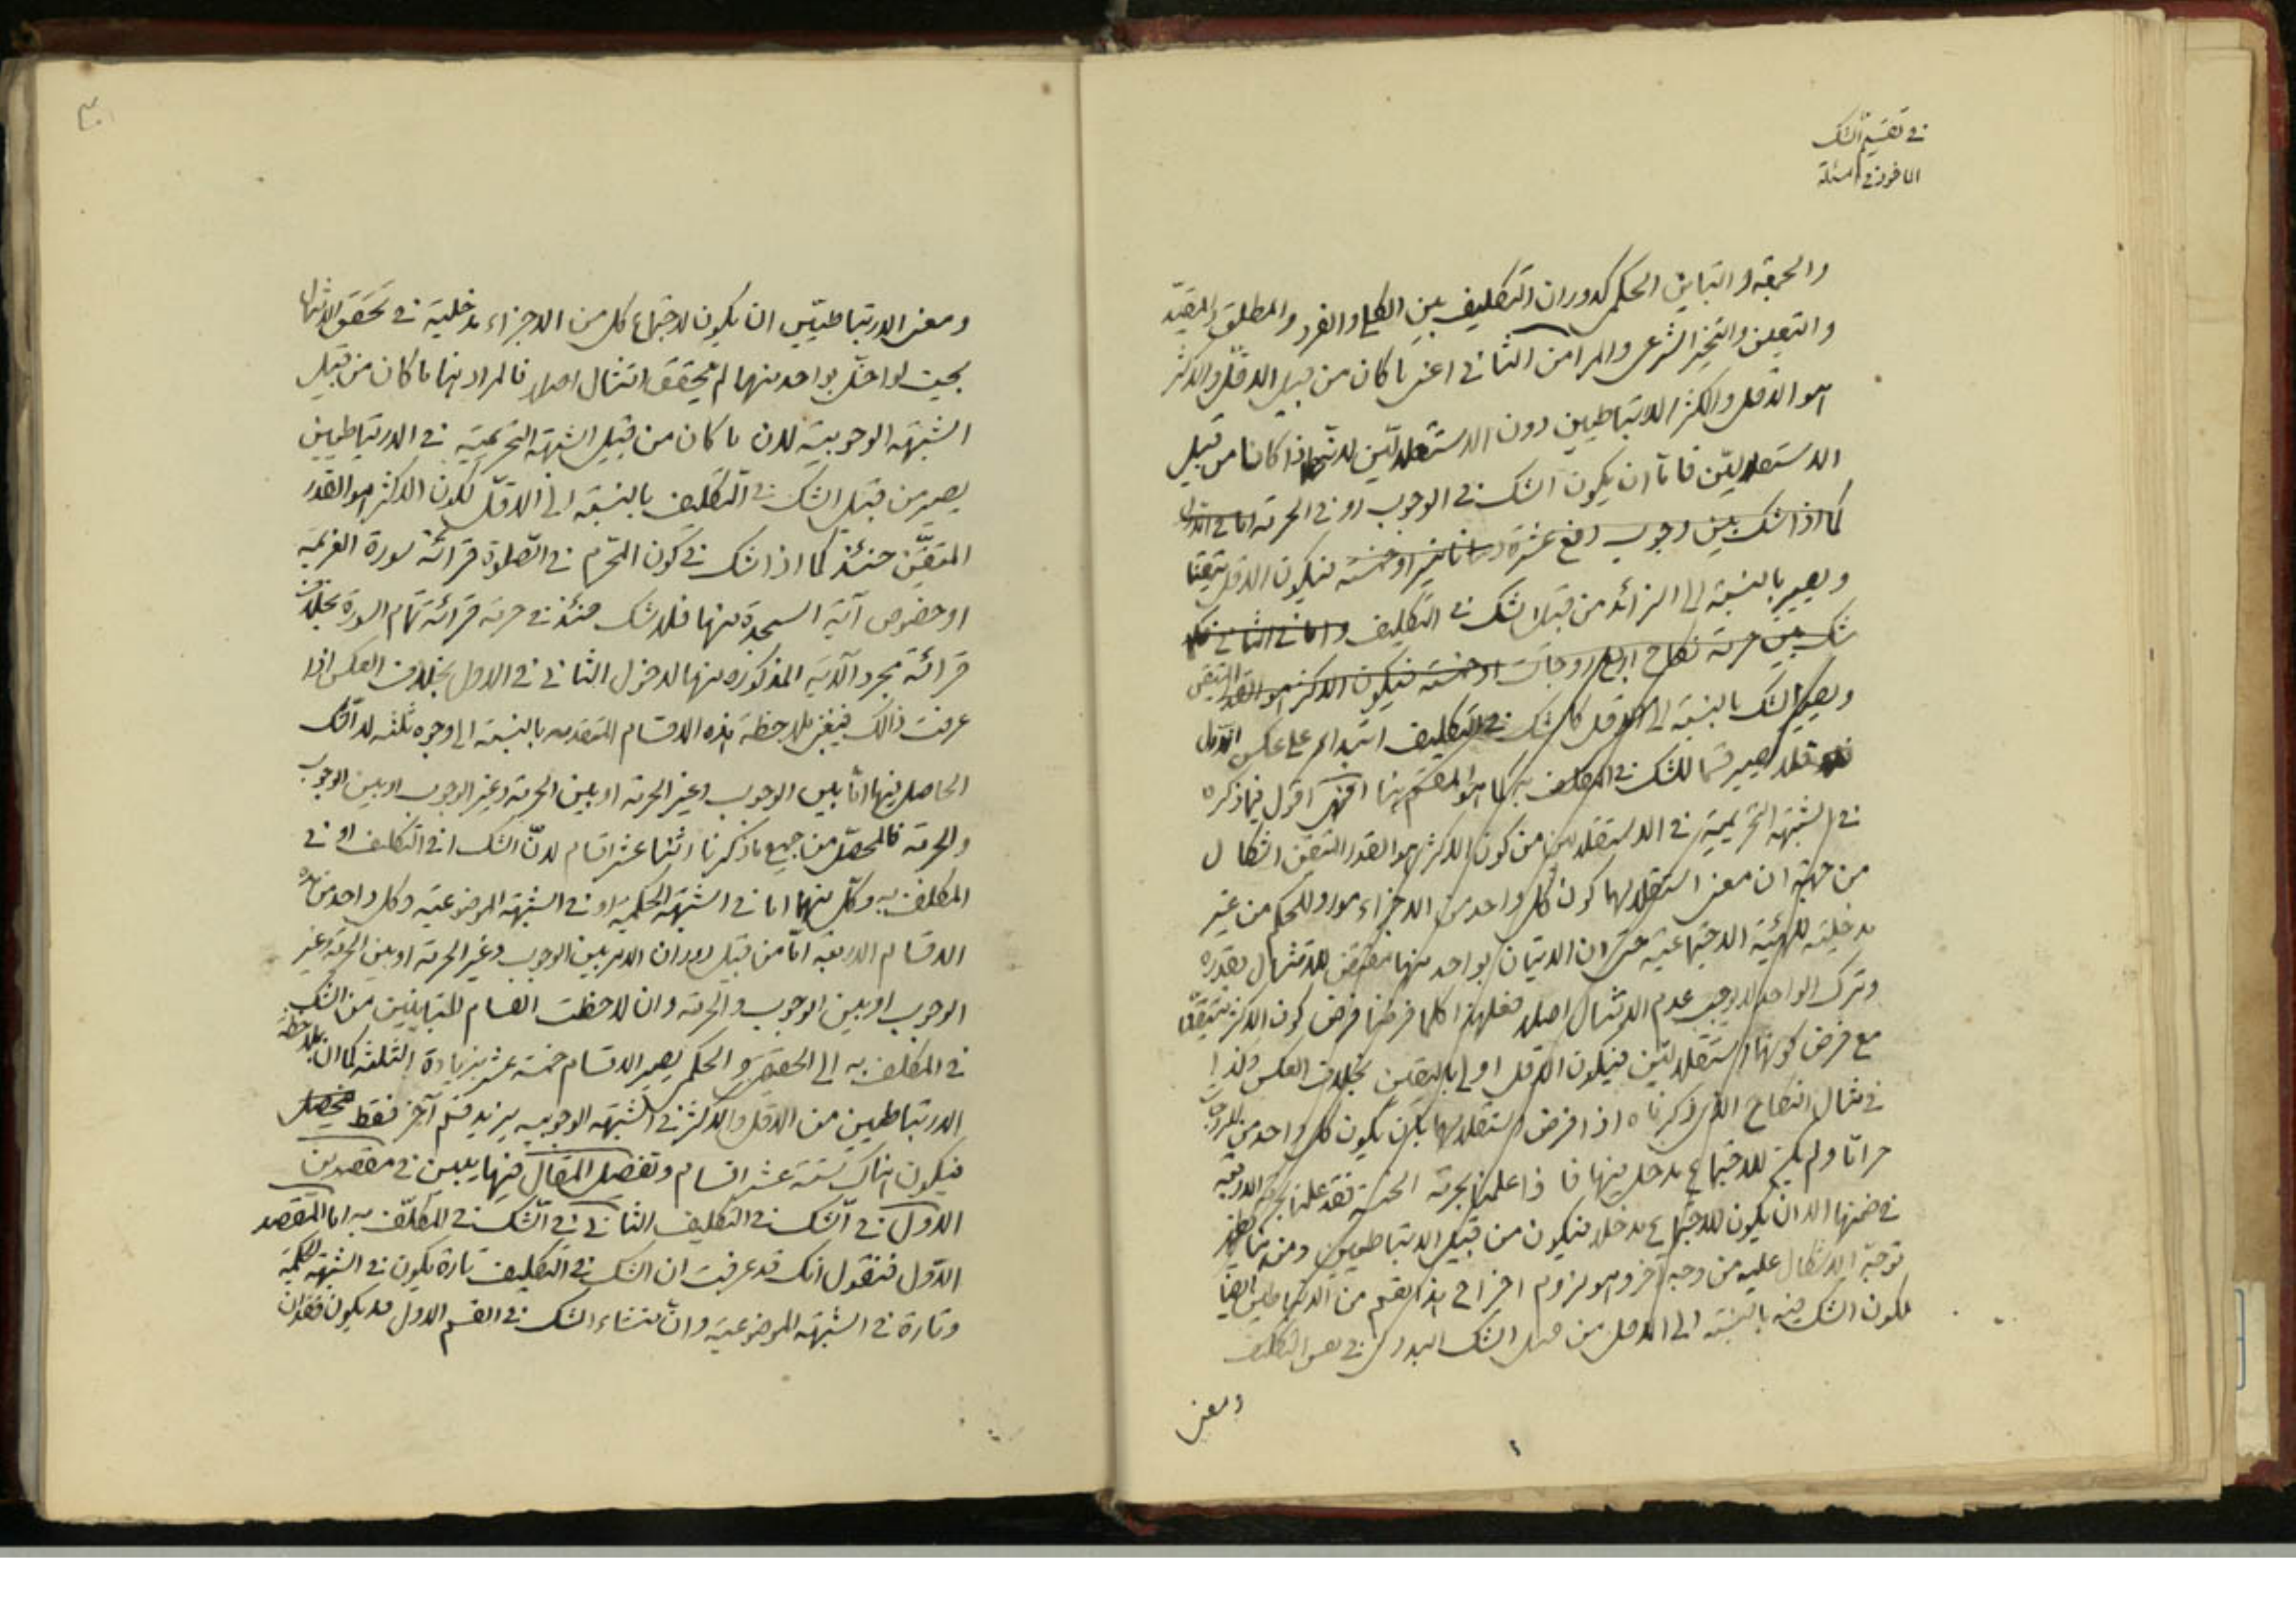 في تقسيم الشك
الماخوذ في المسئلة
والجمعة او التباين الحكمي كدوران التكليف بين الكلي والفرد والمطلق والمقيد
والتعيين والتخيير الشرعي والمراد من الثاني اعني ما كان من قبيل الاقل والاكثر
هو الاقل والاكثر الارتباطيين دون الاستقلاليين لانهما اذا كانا من قبيل
الاستقلاليين فاما ان يكون الشك في الوجوب او في الحرمة اما في الاول
كما اذا شك بين وجوب دفع عشرة او خمسة فيكون الاقل متيقنا
ويصير بالنسبة الى الزائد من قبيل الشك في التكليف واما في الثاني فكما
شك بين حرمة نكاح اربع زوجات او خمسة فيكون الاكثر هو القدر المتيقن
ويصير الشك بالنسبة الى الاقل كالشك في التكليف ابتداء على عكس الاول
فلا يصير قسما للشك في المكلف به كما هو المقسم هنا انتهى اقول فيما ذكره
في الشبهة التحريمية في الاستقلاليين من كون الاكثر هو القدر المتيقن اشكال
من جهة ان معنى استقلالهما كون كل واحد من الاجزاء موردا للحكم من غير
مدخلية للهيئة الاجتماعية حتى ان الاتيان بواحد منها مقتض للامتثال بقدره
وترك الواحد لا يوجب عدم الامتثال اصلا فعلى هذا كلما فرضنا فرض كون الاكثر متيقنا
مع فرض كونهما استقلاليين فيكون الاقل اولى باليقين بخلاف العكس ولذا
في مثال النكاح الذي ذكرناه اذا فرض استقلالهما بان يكون كل واحد من الزوجات
حراما ولم يكن للاجتماع مدخل فيها فاذا علمنا بحرمة الخمسة فقد علمنا بحرمة الاربعة
في ضمنها الا ان يكون للاجتماع مدخلا فيكون من قبيل الارتباطيين ومن هنا يظهر
توجه الاشكال عليه من وجه آخر وهو لزوم اخراج هذا القسم من الارتباطيين ايضا
لكون الشك فيه بالنسبة الى الاقل من قبيل الشك البدوي في نفس التكليف
ومعنى
ومعنى الارتباطيين ان يكون لاجتماع كل من الاجزاء مدخلية في تحقق الامتثال
بحيث لو اخل بواحد منها لم يتحقق امتثال اصلا فالمراد هنا ما كان من قبيل
الشبهة الوجوبية لان ما كان من قبيل الشبهة التحريمية في الارتباطيين
يصير من قبيل الشك في التكليف بالنسبة الى الاقل لكون الاكثر هو القدر
المتيقن حينئذ كما اذا شك في كون المحرم في الصلوة قرائة سورة العزيمة
او خصوص آية السجدة منها فلا شك حينئذ في حرمة قرائة تمام السورة بخلاف
قرائة مجرد الآية المذكورة منها لدخول الثاني في الاول بخلاف العكس اذا
عرفت ذالك فينبغي ملاحظة هذه الاقسام المتقدمة بالنسبة الى وجوه ثلثة لان الشك
الحاصل فيها اما بين الوجوب وغير الحرمة او بين الحرمة وغير الوجوب او بين الوجوب
والحرمة فالمحصل من جميع ما ذكرنا اثنا عشر اقسام لان الشك اما في التكليف او في
المكلف به وكل منهما اما في الشبهة الحكمية او في الشبهة الموضوعية وكل واحد من هذه
الاقسام الاربعة اما من قبيل دوران الامر بين الوجوب وغير الحرمة او بين الحرمة وغير
الوجوب او بين الوجوب والحرمة وان لاحظت انقسام المتباينين من الشك
في المكلف به الى الحقيقي والحكمي يصير الاقسام خمسة عشر بزيادة الثلثة كما ان بملاحظة
الارتباطيين من الاقل والاكثر في الشبهة الوجوبية يزيد قسم آخر فقط
فيكون هناك ستة عشر اقسام وتفصيل المقال فيها يبين في مقصدين
الاول في الشك في التكليف الثاني في الشك في المكلف به اما المقصد
الاول فنقول انك قد عرفت ان الشك في التكليف تارة يكون في الشبهة الحكمية
وتارة في الشبهة الموضوعية وان منشاء الشك في القسم الاول قد يكون فقدان